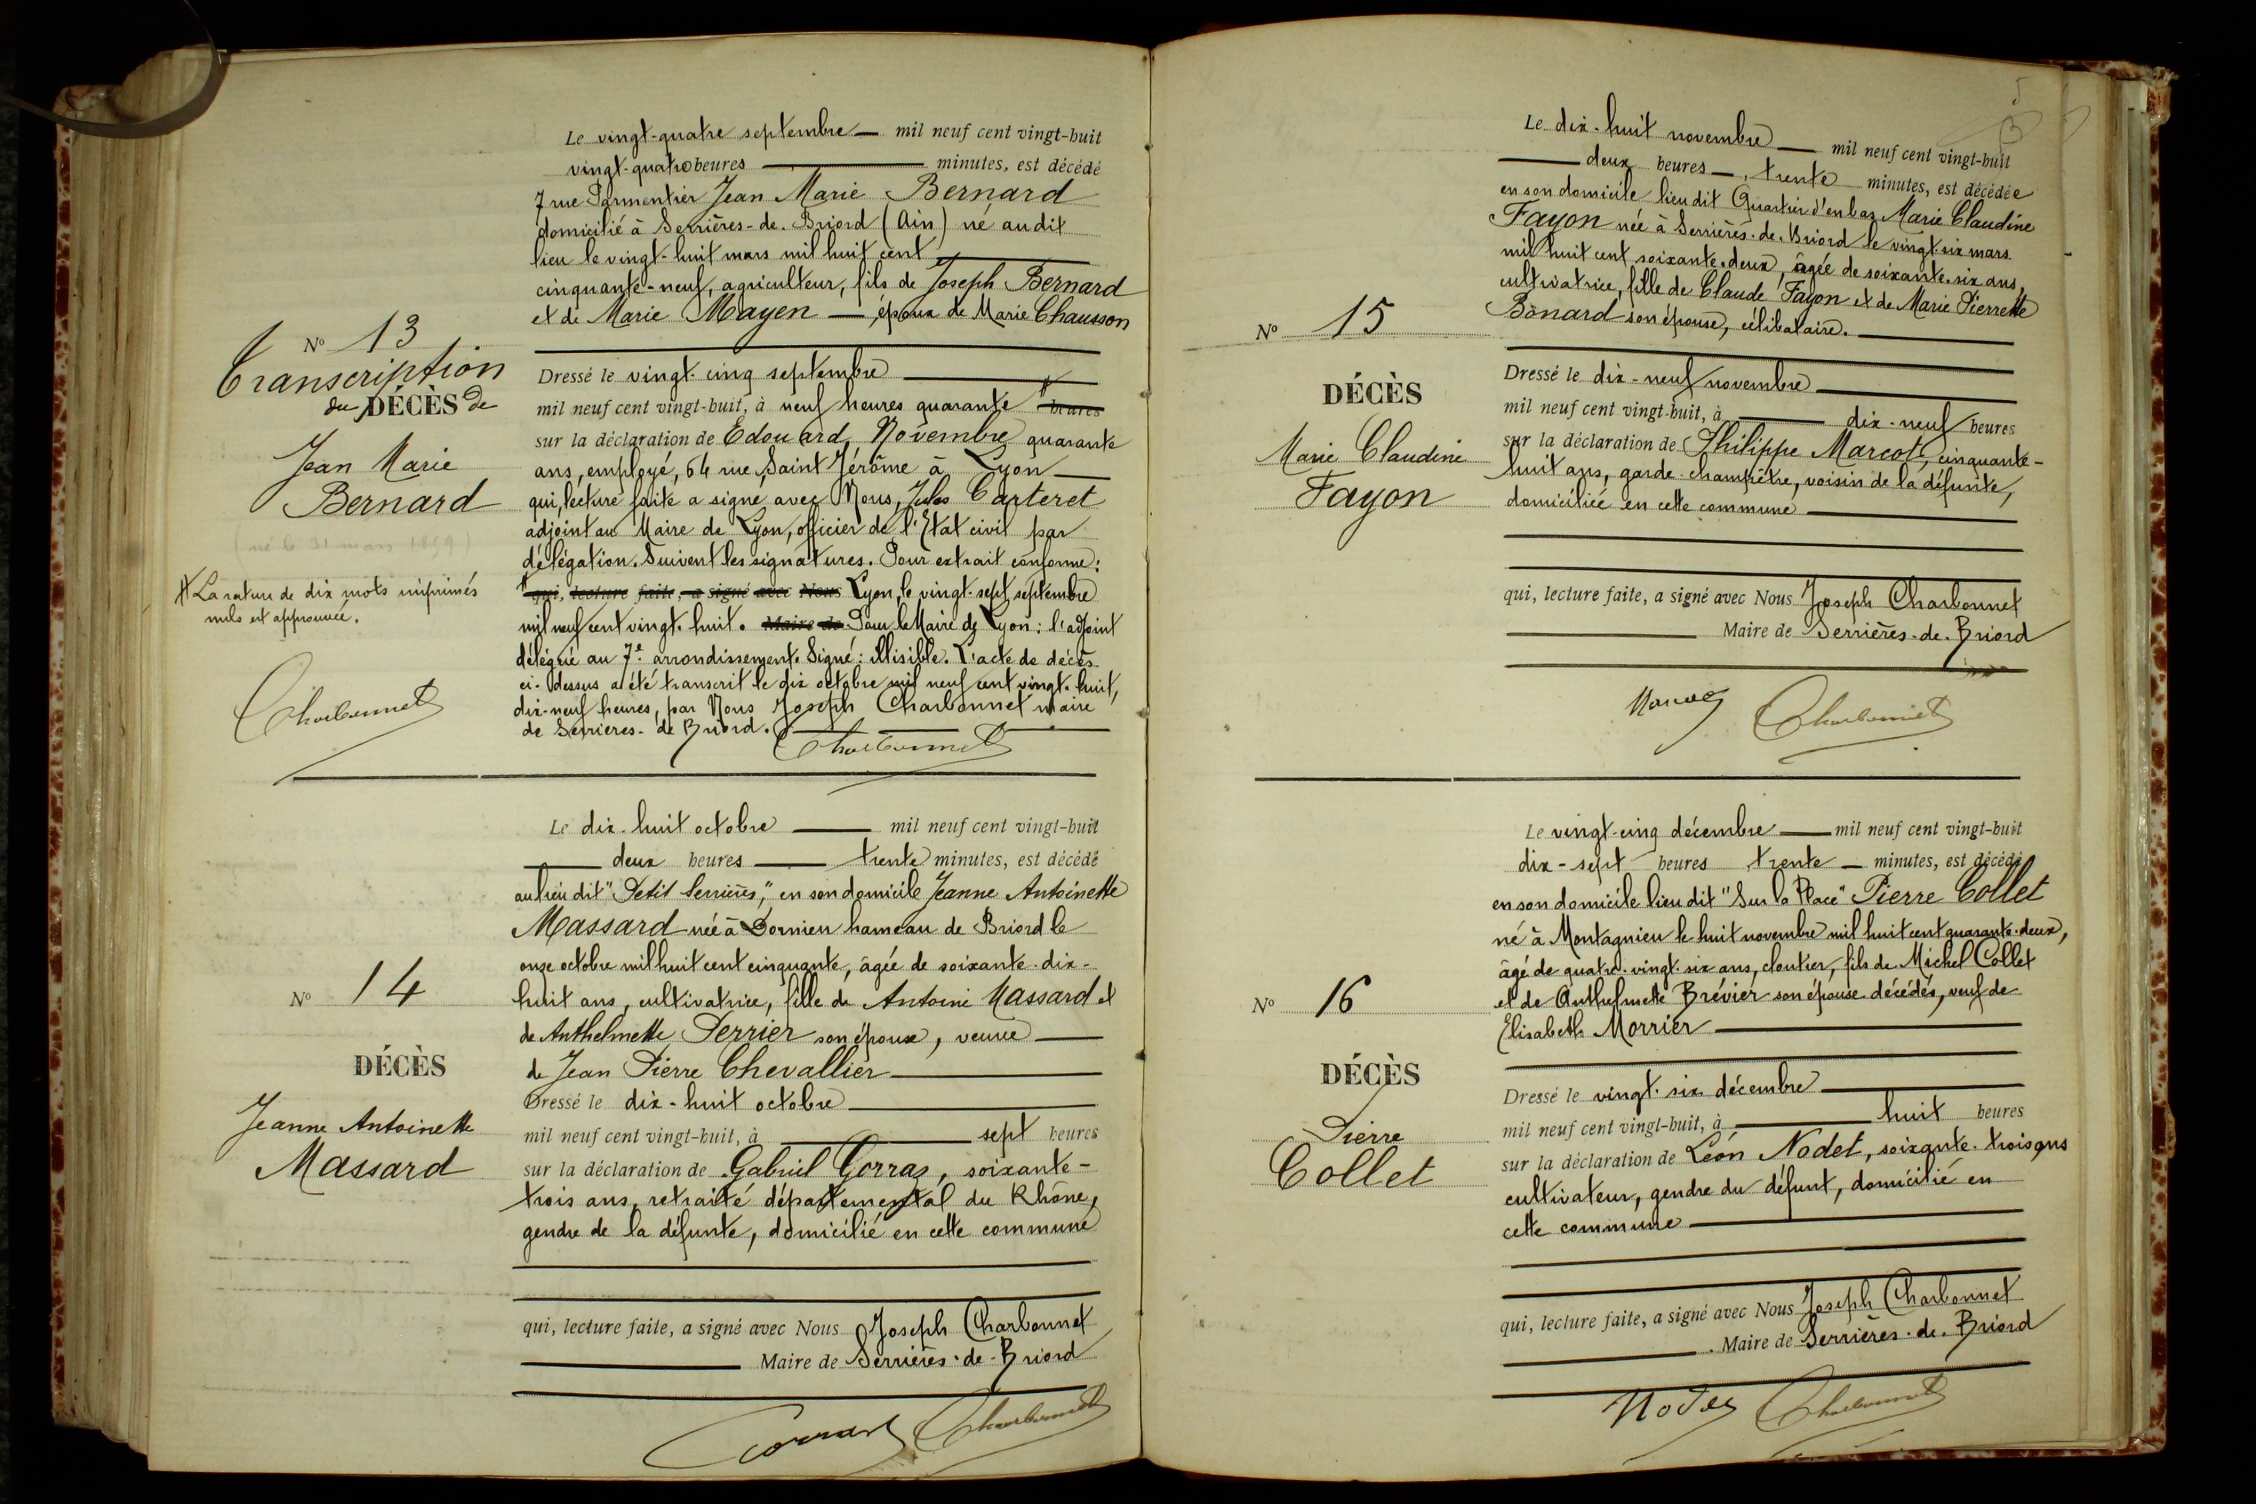 Le vingt-quatre septembre mil neuf cent vingt-huit
vingt-quatre heures minutes, est décédé
7 rue Parmentier Jean Marie Bernard
domicilié à Serrières-de-Briord (Ain) né audit
lieu le vingt-huit mars mil huit cent
cinquante-neuf, agriculteur, fils de Joseph Bernard
et de Marie Mayen époux de Marie Chausson
N° 13
Transcription
du DÉCÈS de
Jean Marie
Bernard
(né le 31 mars 1859)
# La rature de dix mots imprimés
nuls est approuvée.
Charbonnet
Dressé le vingt-cinq septembre
mil neuf cent vingt-huit, à neuf heures quarante # heures
sur la déclaration de Edouard Novembre quarante
ans, employé, 64 rue Saint Jérôme à Lyon
qui, lecture faite a signé avec Nous, Jules Carteret
adjoint au Maire de Lyon, officier de l'Etat civil par
délégation. Suivent les signatures. Pour extrait conforme:
# qui, lecture faite, a signé avec Nous Lyon, le vingt-sept septembre
mil neuf cent vingt-huit. Maire de Pour le Maire de Lyon: l'adjoint
délégué au 7e arrondissement. Signé: illisible. L'acte de décès
ci-dessus a été transcrit le dix octobre mil neuf cent vingt-huit,
dix-neuf heures, par Nous Joseph Charbonnet maire
de Serrières-de Briord.
Charbonnet
Le dix-huit octobre mil neuf cent vingt-huit
deux heures trente minutes, est décédé
au lieu dit "Petit Serrières", en son domicile Jeanne Antoinette
Massard née à Dornieu hameau de Briord le
onze octobre mil huit cent cinquante, âgée de soixante-dix-
huit ans, cultivatrice, fille de Antoine Massard et
de Anthelmette Perrier son épouse, veuve
de Jean Pierre Chevallier
N° 14
DÉCÈS
Jeanne Antoinette
Massard
Dressé le dix-huit octobre
mil neuf cent vingt-huit, à sept heures
sur la déclaration de Gabriel Gorraz, soixante-
trois ans, retraité départemental du Rhône,
gendre de la défunte, domicilié en cette commune
qui, lecture faite, a signé avec Nous Joseph Charbonnet
Maire de Serrières-de-Briord
Gorraz Charbonnet
Le dix-huit novembre mil neuf cent vingt-huit
deux heures trente minutes, est décédée
en son domicile lieu dit Quartier d'en bas Marie Claudine
Fayon née à Serrières-de-Briord le vingt-six mars
mil huit cent soixante-deux, âgée de soixante-six ans,
cultivatrice, fille de Claude Fayon et de Marie Pierrette
Bonard son épouse, célibataire.
N° 15
DÉCÈS
Marie Claudine
Fayon
Dressé le dix-neuf novembre
mil neuf cent vingt-huit, à dix-neuf heures
sur la déclaration de Philippe Marcot, cinquante-
huit ans, garde-champêtre, voisin de la défunte,
domiciliée en cette commune
qui, lecture faite, a signé avec Nous Joseph Charbonnet
Maire de Serrières-de-Briord
Marcot Charbonnet
Le vingt-cinq décembre mil neuf cent vingt-huit
dix-sept heures trente minutes, est décédé
en son domicile lieu dit "Sur la Place" Pierre Collet
né à Montagnieu le huit novembre mil huit cent quarante-deux,
âgé de quatre-vingt-six ans, cloutier, fils de Michel Collet
et de Anthelmette Brévier son épouse décédés, veuf de
Elisabeth Morrier
N° 16
DÉCÈS
Pierre
Collet
Dressé le vingt-six décembre
mil neuf cent vingt-huit, à huit heures
sur la déclaration de Léon Nodet, soixante-trois ans
cultivateur, gendre du défunt, domicilié en
cette commune
qui, lecture faite, a signé avec Nous Joseph Charbonnet
Maire de Serrières-de-Briord
Nodet Charbonnet